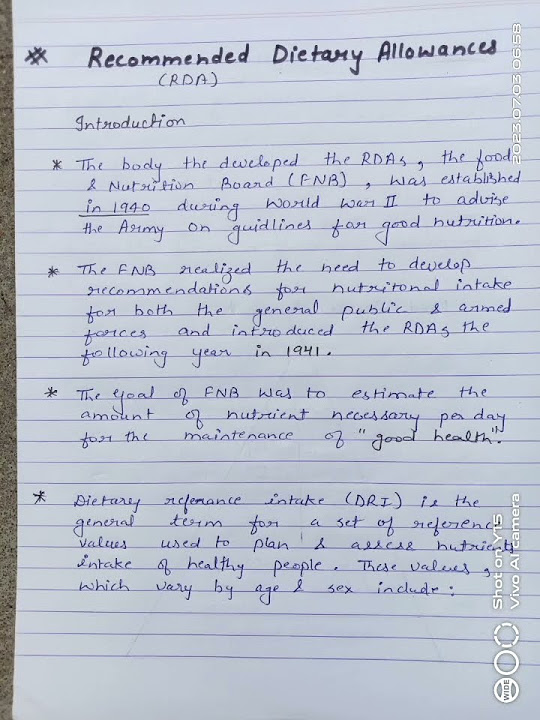 * Recommended Dietary Allowances
(RDA)
Introduction
* The body the developed the RDAs, the food
& Nutrition Board (FNB), was established
in 1940 during World War II to advise
the Army on guidlines for good nutrition.
* The FNB realized the need to develop
recommendations for nutritonal intake
for both the general public & armed
forces and introduced the RDAs the
following year in 1941.
* The goal of FNB was to estimate the
amount of nutrient necessary per day
for the maintenance of "good health".
* Dietary referance intake (DRI) is the
general term for a set of reference
values used to plan & assess nutrients
intake of healthy people. These values,
which vary by age & sex include:
2023.07.03 06:58
Shot on Y15
Vivo AI camera
WIDE